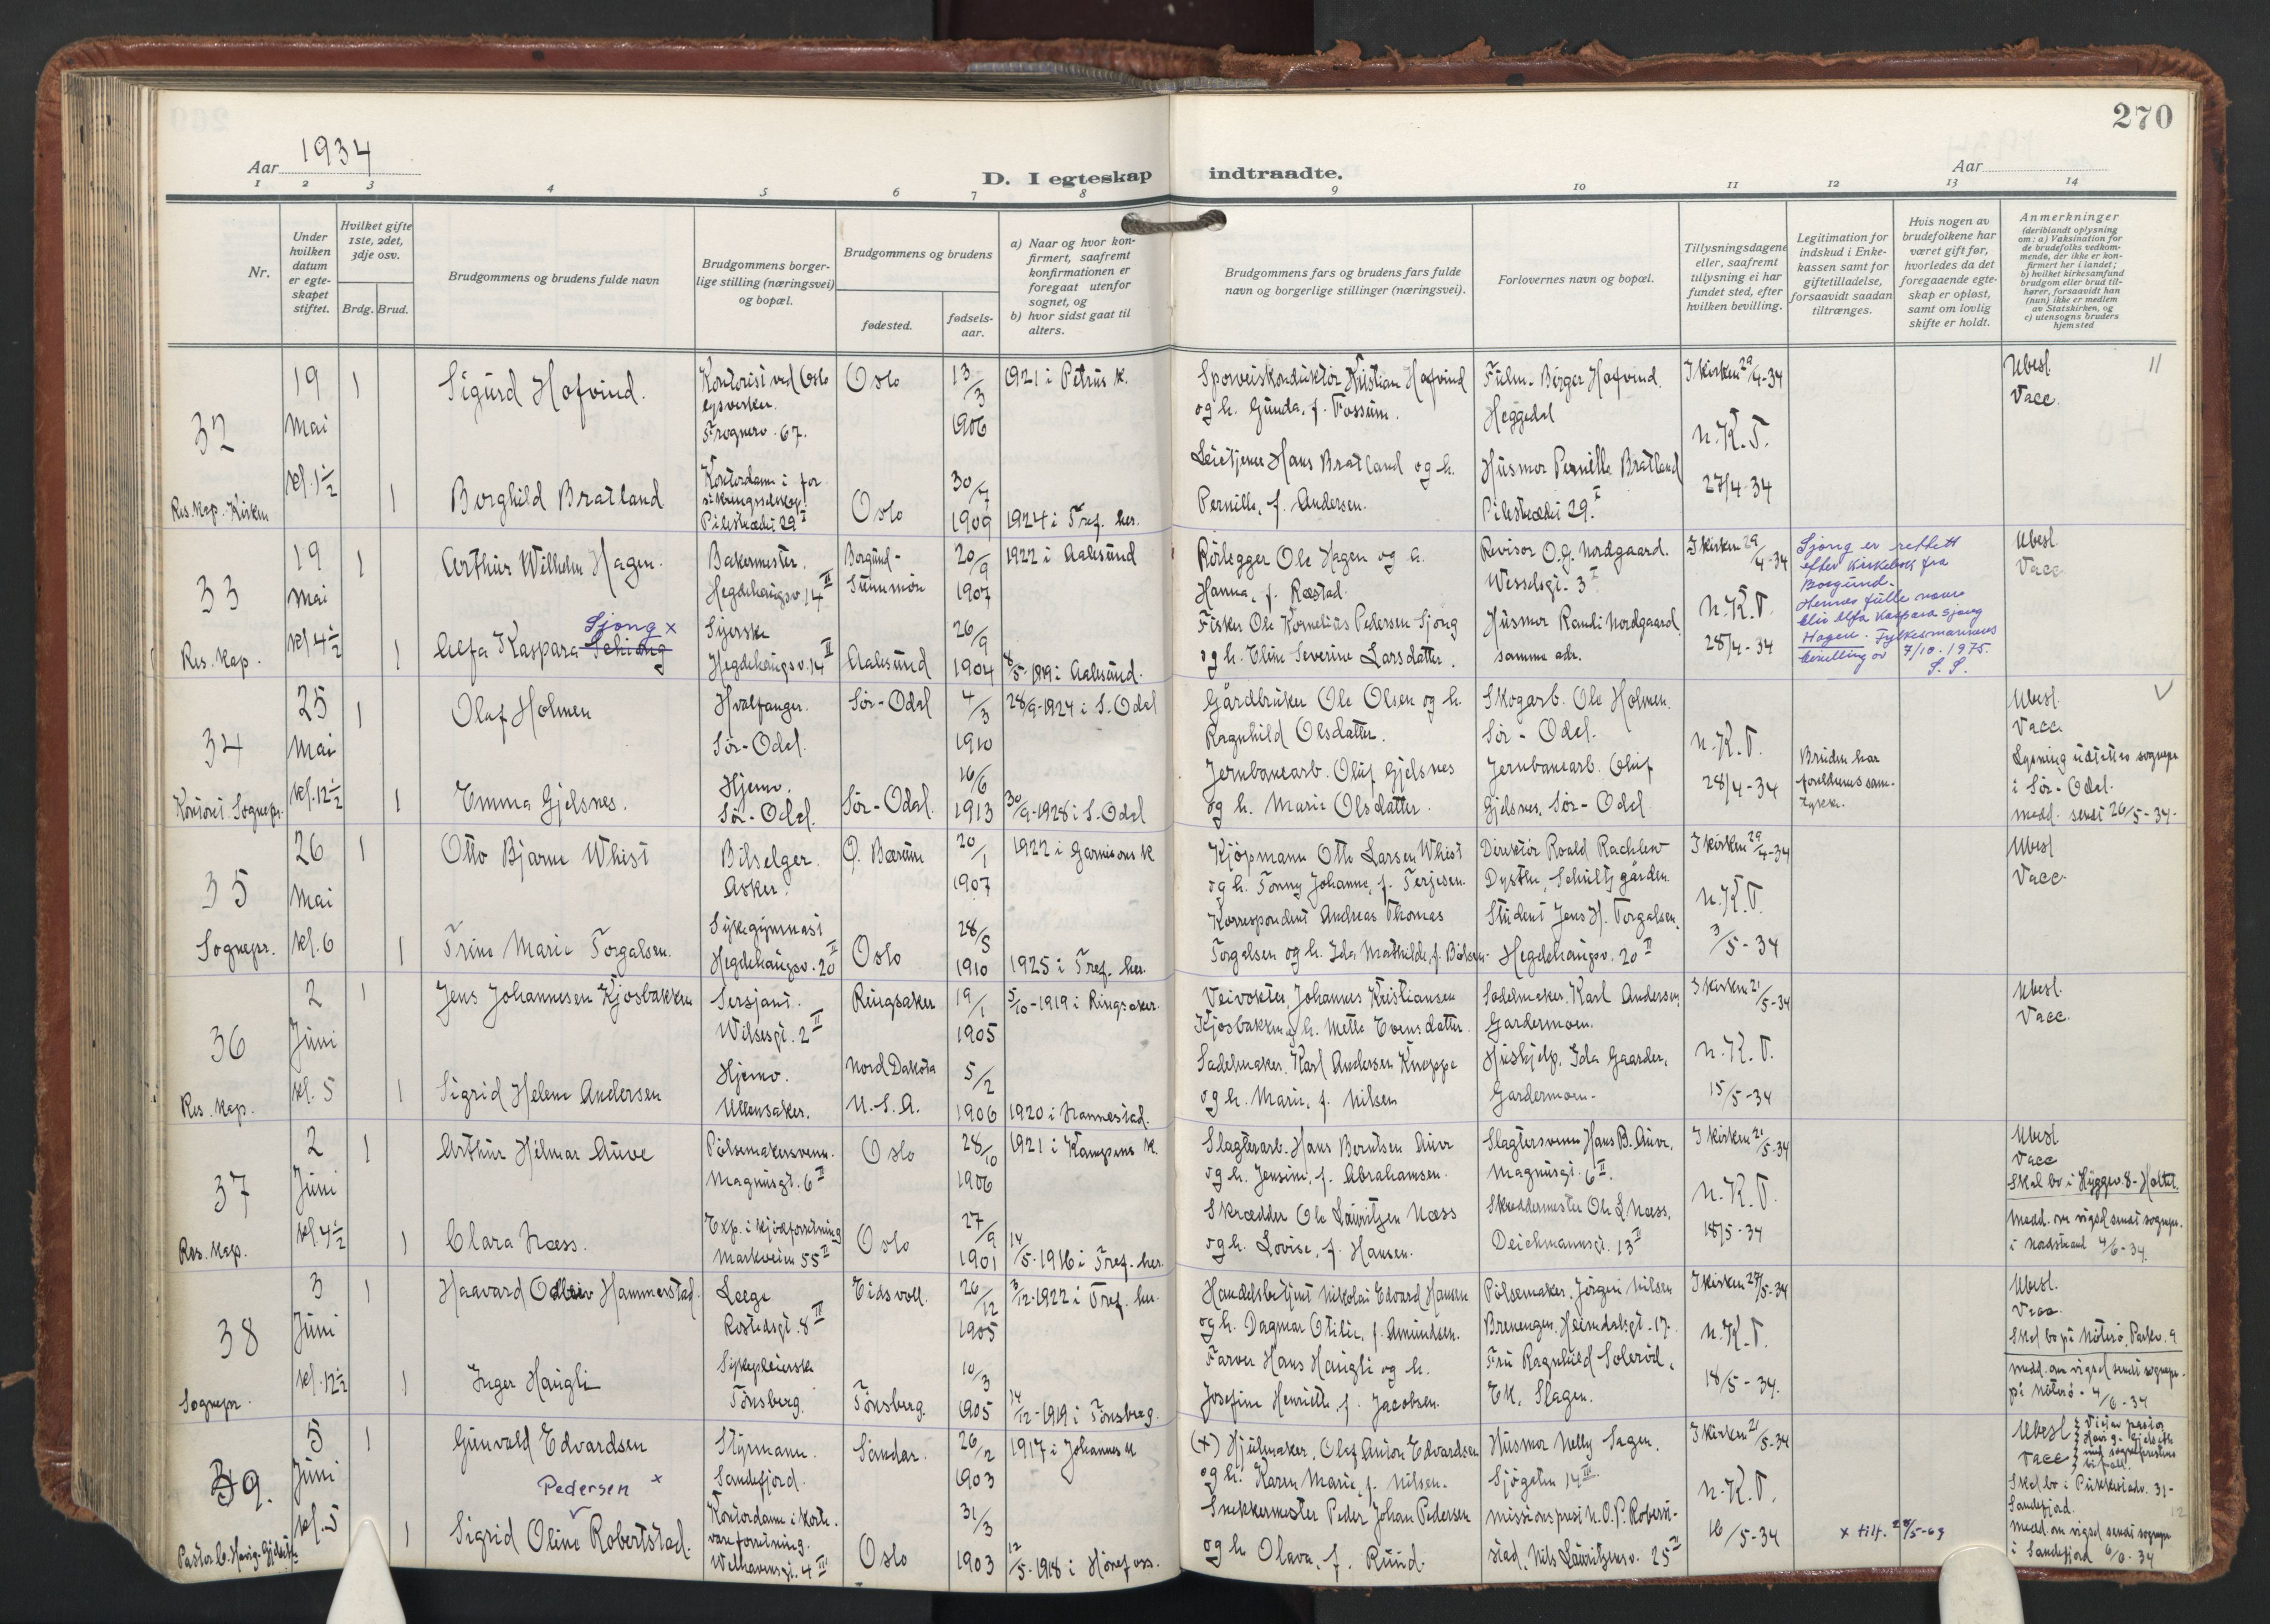 270
Aar 1934
D. I egteskap indtraadte.
Aar
1 2 3 4 5 6 7 8 9 10 11 12 13 14
Nr.
Under hvilken datum er egte-skapet stiftet.
Hvilket gifte 1ste, 2det, 3dje osv.
Brdg. Brud.
Brudgommens og brudens fulde navn
Brudgommens borger-lige stilling (næringsvei) og bopæl.
Brudgommens og brudens
fødested.
fødsels-aar.
a) Naar og hvor kon-firmert, saafremt konfirmationen er foregaat utenfor sognet, og
b) hvor sidst gaat til alters.
Brudgommens fars og brudens fars fulde navn og borgerlige stillinger (næringsvei).
Forlovernes navn og bopæl.
Tillysningsdagene eller, saafremt tillysning ei har fundet sted, efter hvilken bevilling.
Legitimation for indskud i Enke-kassen samt for giftetilladelse, forsaavidt saadan tiltrænges.
Hvis nogen av brudefolkene har været gift før, hvorledes da det foregaaende egte-skap er opløst, samt om lovlig skifte er holdt.
Anmerkninger
(deriblandt oplysning om: a) Vaksination for de brudefolks vedkom-mende, der ikke er kon-firmert her i landet; b) hvilket kirkesamfund brudgom eller brud til-hører, forsaavidt han (hun) ikke er medlem av Statskirken, og c) utensogns bruders hjemsted
32
19 Mai kl. 1½
Res. kap. Kirken
1 Sigurd Hofvind.
Kontorist ved Oslo lysverker.
Frognerv. 67.
Oslo
13/3 1906
1921 i Petrus k.
Sporveiskonduktør Kristian Hofvind
og h. Gunda, f. Fossum.
Fulm. Birger Hofvind.
Heggedal
I kirken 29/4-34
n.K.T.
27/4-34
Ubesl
Vacc.
1 Borghild Bratland
Kontordame i for-sikringsselskap
Pilestrædet 29 I
Oslo
30/7 1909
1924 i Tref. her.
Hans Bratland og h.
Pernille, f. Andersen.
Husmor Pernille Bratland
Pilestrædet 29 I
33
19 Mai kl 4½
Res. kap.
1 Arthur Wilhelm Hagen.
Bakermester.
Hegdehaugsv 14 II
Borgund-Sunnmøre
20/9 1907
1922 i Aalesund
Rørlegger Ole Hagen og h.
Hanna, f. Røstad.
Revisor O.G. Nordgaard.
Wesselsgt. 3 I
I kirken 29/4-34
n.K.T.
28/4-34
Sjong er rettet
efter kirkebok fra
Borgund.
Hennes fulle navn
blir Alfa Kaspara Sjong
Hagen. Fylkesmannens
bevilling av 7/10.1975.
S.S.
Ubesl
Vacc
Sjong x
1 Alfa Kaspara Schiong
Syerske
Hegdehaugsv. 14 II
Aalesund
26/9 1904
8/5-1919 i Aalesund.
Fisker Ole Kornelius Pedersen Sjong
og h. Eline Severine Larsdatter.
Husmor Randi Nordgaard
samme adr.
34
25 Mai kl. 12½
Kontoret. Sognepr.
1 Olaf Holmen
Hvalfanger.
Sør-Odal.
Sør-Odal
4/3 1910
28/9-1924 i S. Odal
Gårdbruker Ole Olsen og h.
Ragnhild Olsdatter.
Skogarb. Ole Holmen.
Sør-Odal.
n.K.T.
28/4-34
Bruden har
foreldrenes sam-
tykke.
Ubesl.
Vacc.
Lysning utstettes sognepr
i Sør-Odal.
medd. sendt 26/5-34.
1 Emma Gjelsnes.
Hjemv.
Sør-Odal.
Sør-Odal.
16/6 1913
30/9-1928 i S. Odal
Jernbanearb. Oluf Gjelsnes
og h. Marie Olsdatter.
Jernbanearb. Oluf
Gjelsnes, Sør-Odal
35
26 Mai kl. 6
Sognepr.
1 Otto Bjarne Whist
Bilselger.
Asker.
Ø. Bærum
20/1 1907
1922 i Garnisons k
Kjøpmann Otto Larsen Whist
og h. Tonny Johanne, f. Terjesen.
Direktør Roald Rachlew
Dysthe, Schultzgården.
I kirken 29/4-34
n.K.T.
3/5-34
Ubesl
Vacc.
1 Trine Marie Torgalsen.
Sykegymnast
Hegdehaugsv. 20 II
Oslo
28/5 1910
1925 i Tref. her.
Korrespondent Andreas Thomas
Torgalsen og h. Ida Mathilde, f.
Student Jens H. Torgalsen.
Hegdehaugsv. 20 II
36
2 Juni kl. 5
Res. kap.
1 Jens Johannesen Kjosbakken
Sersjant.
Wilsesgt. 2 II
Ringsaker
19/1 1905
5/10-1919 i Ringsaker.
Veivokter, Johannes Kristiansen
Kjosbakken og h. Mette Evensdatter.
Sadelmaker. Karl Andersen,
Gardermoen.
I kirken 21/5-34
n.K.T.
15/5-34
Ubesl.
Vacc.
1 Sigrid Helene Andersen
Hjemv.
Ullensaker.
Nord Dakota
U.S.A.
5/2 1906
1920 i Hannestad.
Sadelmaker. Karl Andersen Knoppe
og h. Marie, f. Nilsen
Hushjelp. Ida Gaarder,
Gardermoen.
37
2 Juni kl. 4½
Res. kap.
1 Arthur Hilmar Auve
Pølsemakersvenn.
Magnusgt. 6 II
Oslo
28/10 1906
1921 i Kampens k.
Slagterarb. Hans Berntsen Auve
og h. Jensine, f. Abrahamsen.
Slagtersvenn Hans B. Auve,
Magnusgt. 6 II.
I kirken 21/5-34
n.K.T.
18/5-34
Ubesl
Vacc
Skal bo i Hyggev. 8-Holtet.
Medd. om vigsel sendt sognepr.
i Nordstrand 4/6-34.
1 Clara Næss.
Exp. i kjolforretning
Markveien 55 II
Oslo
27/9 1901
14/5-1916 i Tref. her.
Skrædder Ole Lauritzen Næss
og h. Lovise, f. Hansen.
Skreddermester Ole L Næss,
Deichmannsgt. 13 II
38
3 Juni kl. 12½
Sognepr.
1 Haavard Odleiv Hammerstad.
Læge
Rostedsgt. 8 III
Eidsvoll.
26/12 1905
3/12-1922 i Tref. her.
Handelsbetjent Nikolai Edvard Hansen
og h. Dagmar Otilie, f. Amundsen.
Pølsemaker. Jörgen Nilsen
Brenengen. Heimdalsgt. 17.
I kirken 27/5-34
n.K.T.
18/5-34.
Ubesl.
Vacc.
Skal bo på Nøterø, Parkv. 9
medd. om vigsel sendt sognepr.
på Nøterø. 4/6-34
1 Inger Haugli
Sykepleierske
Tønsberg.
Tønsberg.
10/3 1905
14/12-1919 i Tønsberg.
Farver Hans Haugli og h.
Josefine Henriette, f. Jacobsen.
Fru Ragnhild Solerød,
Ek, Slagen.
39.
5 Juni kl. 5
Pastor C. Høvig-Gjelseth
1 Gunvald Edvardsen
Styrmann.
Sandefjord.
Sandar.
26/2 1903
1917 i Johannes k
(+) Hjulmaker. Olaf Anton Edvardsen
og h. Karen Marie, f. Nilsen.
Husmor Nelly Sagen.
Sjøgaten 14 III.
I kirken 21/5-34
n.K.T.
16/5-34
x tilf. 28/5-69
Ubesl
Vacc
Viet av pastor
Høvig-Gjelseth
med sogneprestens
Skal bo i Pukkestadv. 31-
Sandefjord.
medd om vigsel sendt sognepr
i Sandefjord 6/6-34
Pedersen x
1 Sigrid Oline Robertstad.
Kontordame i korte-
vareforretning.
Welhavensgt. 4 III
Oslo
31/3 1903
12/5-1918 i Hønefoss.
Snekkermester Peder Johan Pedersen
og h Olava, f. Ruud.
missionsprest N.O.P. Robert-
stad, Nils Lauritzensv. 25 II